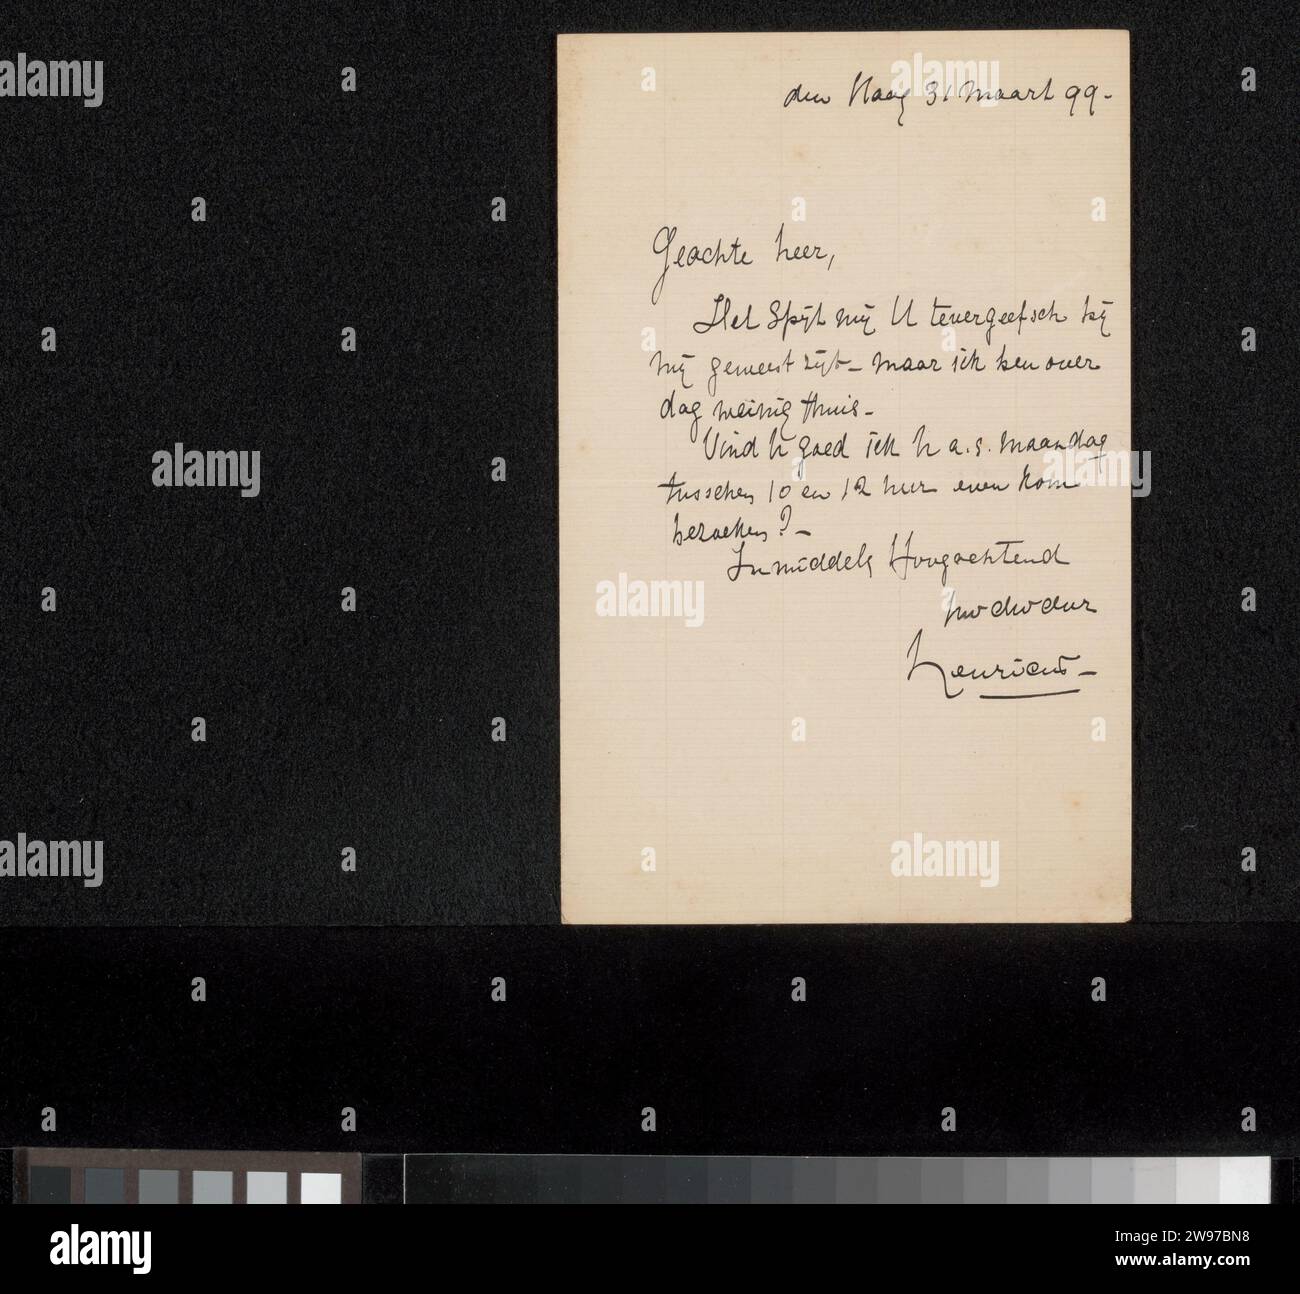 den Haag 31 Maart 99.
Geachte heer,
Het Spijt mij U tevergeefsch bij
mij geweest zijt - maar ick ben over
dag weinig thuis -
Vind U goed ick U a.s. maandag
tusschen 10 en 12 uur even kom
bezoeken? -
Inmiddels Hoogachtend
Henricus -
alamy
Image ID: 2W97BN8
www.alamy.com